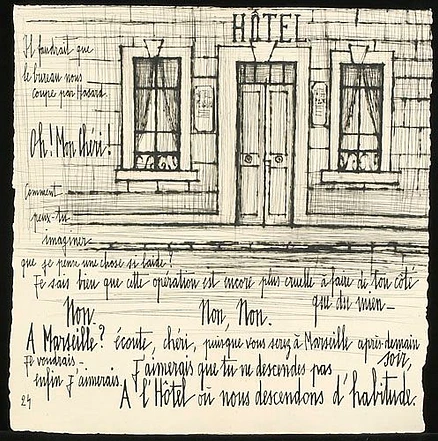 HÔTEL
Il faudrait que
le bureau nous
coupe par hasard.
Oh! Mon Chéri!
Comment
peux-tu
imaginer
que je pense une chose si laide?
Je sais bien que cette opération est encore plus cruelle à faire de ton côté
que du mien_
Non. Non, Non.
A Marseille? écoute, chéri, puisque vous serez à Marseille après-demain
soir,
Je voudrais_
enfin j'aimerais.
J'aimerais que tu ne descendes pas
A l'Hôtel où nous descendons d'habitude.
24